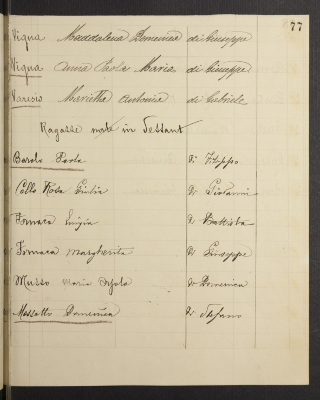 77
Vigna Maddalena Domenica di Giuseppe
Vigna Anna Paola Maria di Giuseppe
Varesio Marietta Antonia di Gabriele
Ragazze nate in
Barolo Paola di Filippo
Cello Rosa Giulia di Giovanni
Fornara Luigia di Battista
Fornara Margherita di Giuseppe
Musso Maria di Domenica
Massetto Domenica di Stefano